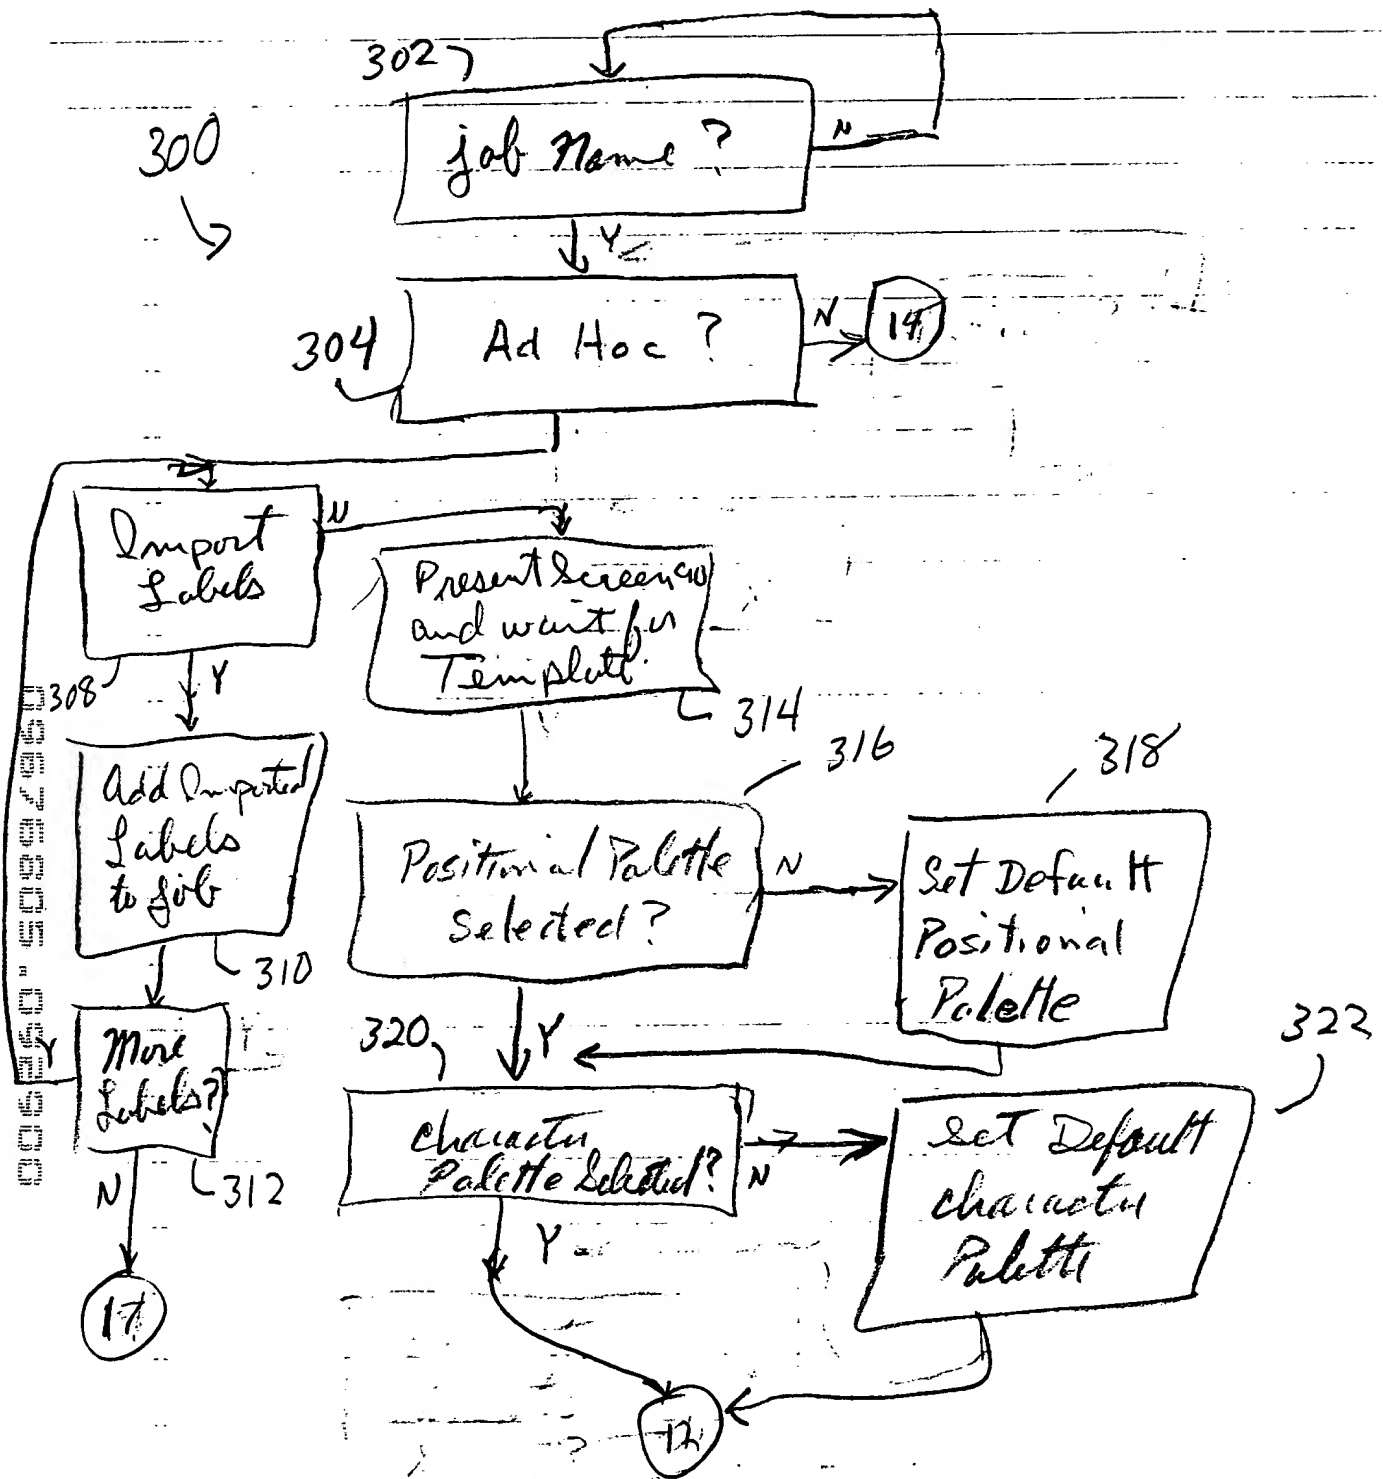 302
300
job Name?
N
Y
304
Ad Hoc?
N
14
Import
Labels
N
308
Y
Present Screen
and wait for
Template
314
Add Imported
Labels
to job
310
316
318
Positional Palette
Selected?
N
Set Default
Positional
Palette
Y
More
Labels?
312
N
17
320
Y
322
character
Palette Selected?
N
Set Default
character
Palette
Y
12